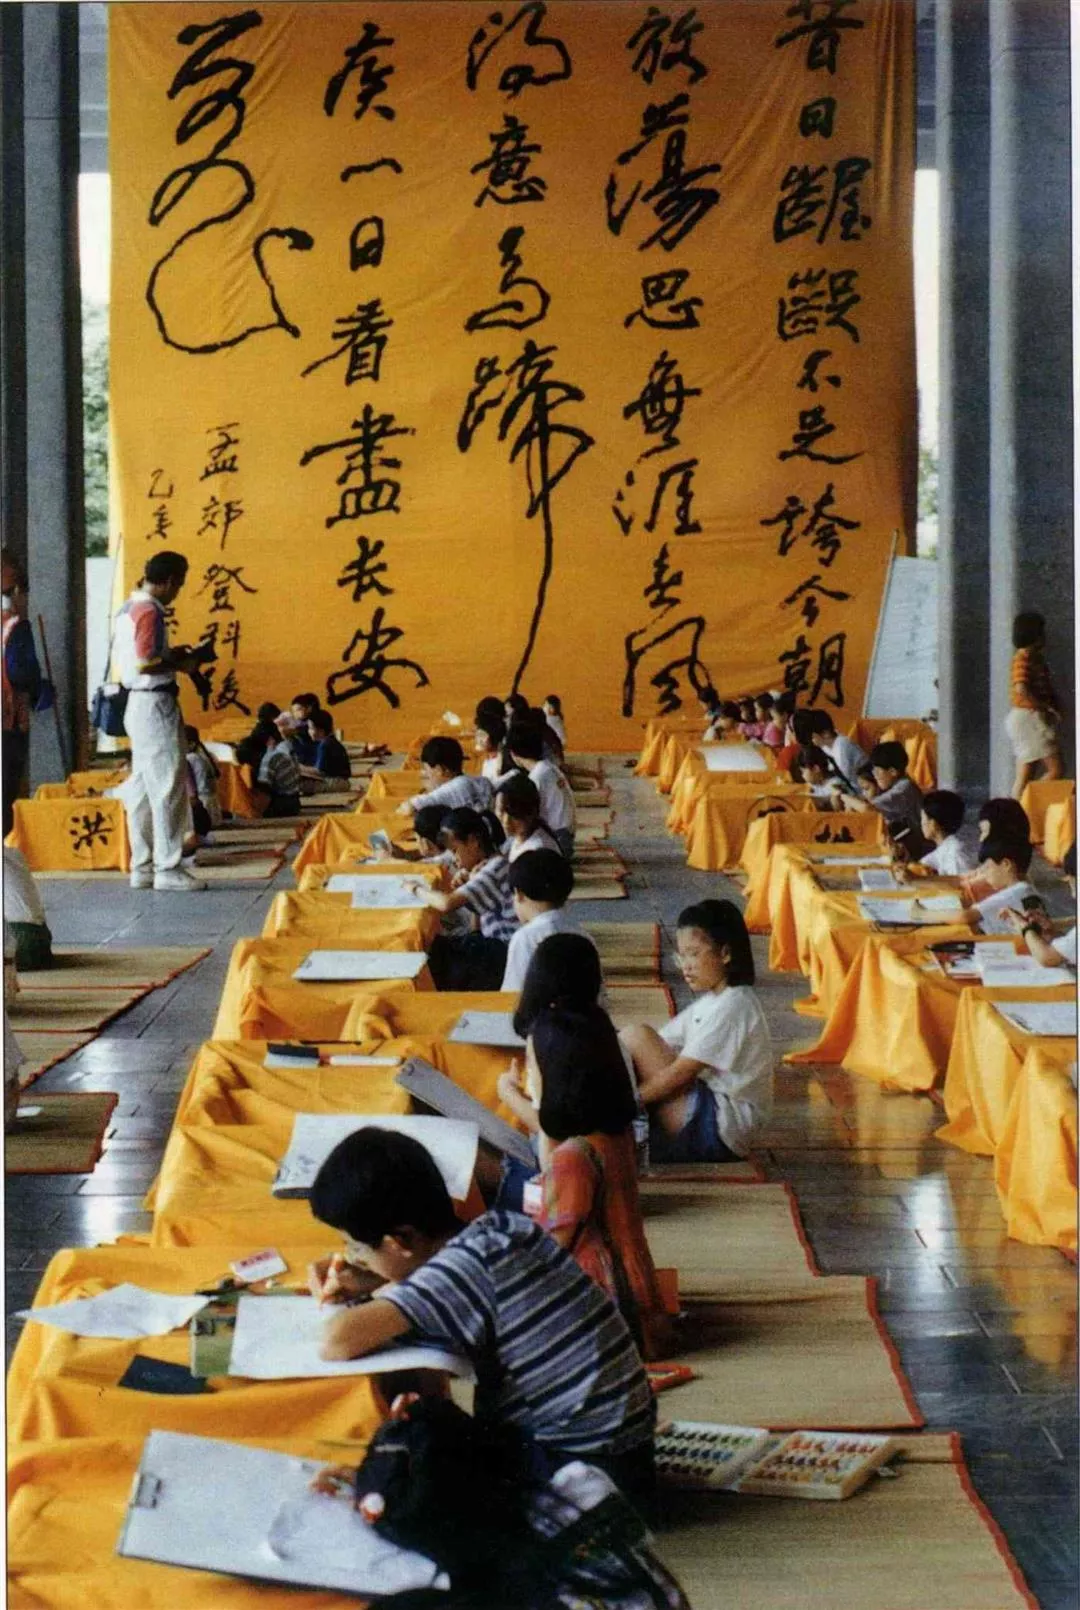 昔日齷齪不足誇今朝
放蕩思無涯春風
得意馬蹄
疾一日看盡長安
花
孟郊登科後
乙亥
洪